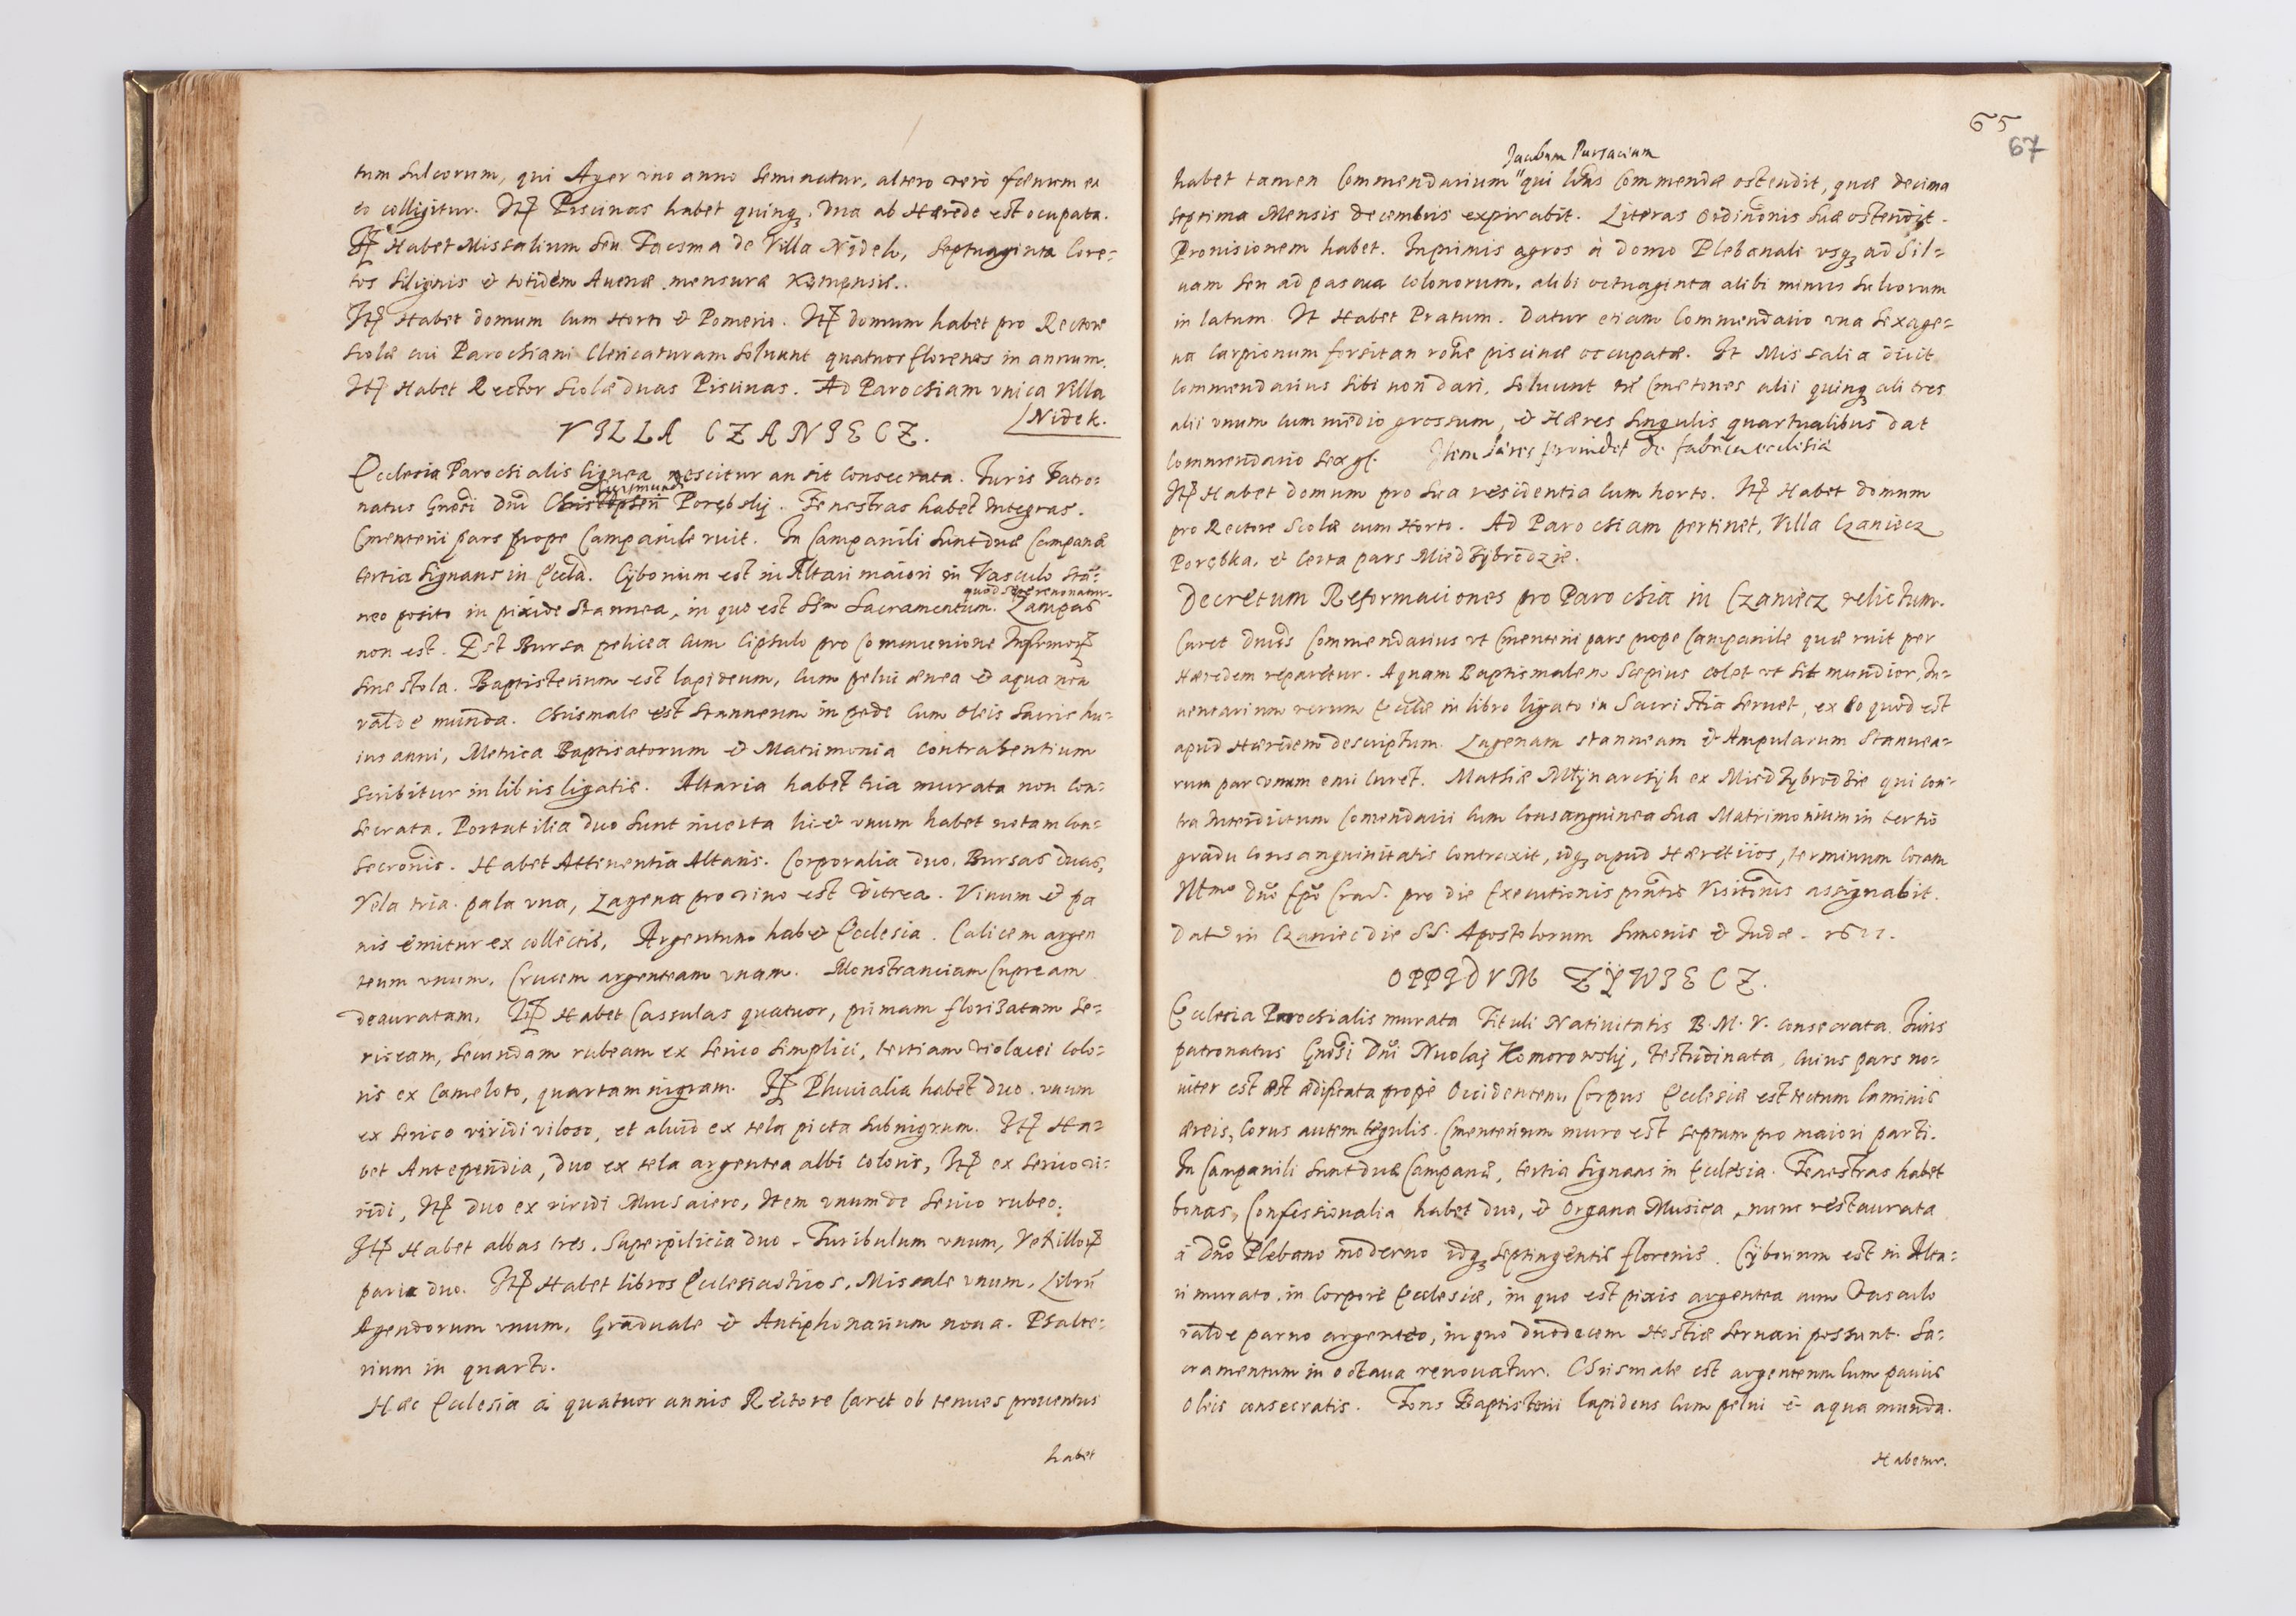 tum sulcorum, qui Ager vno anno seminatur, altero verò fœnum ex
eo colligitur. Itꝶ Piscinas habet quinqꝫ. Vna ab Hærede est ocupata.
Itꝶ Habet Missalium seu Taesma de Villa Nidek, Septuaginta Core-
tos siliginis & totidem Auenæ mensuræ
Itꝶ Habet domum cum Horto & Pomerio. Itꝶ domum habet pro Rectore
Scolæ cui Parochiani Clericaturam soluunt quatuor florenos in annum.
Itꝶ Habet Rector Scolæ duas Piscinas. Ad Parochiam vnica Villa
Nidek.
VILLA CZANIECZ.
Ecclesia Parochialis lignea nescitur an sit consecrata. Iuris Patro-
natus Gnosi Dni Porębsky. Fenestras habet Integras.
Cmenterii pars prope Campanile ruit. In Campanili sunt duæ Campanæ
tertia signans in Eccla. Cyborium est in Altari maiori in Vasculo sta-
quod sæpe renouatur.
neo posito in pixide stannea, in quo est SSm Sacramentum. Lampas
non est. Est Bursa pelicea cum Cipsulo pro Communione Infirmoꝶ
sine stola. Baptisterium est lapideum, cum pelui ænea & aqua non
valde munda. Chrismale est stanneum in pede cum oleis sacris hu-
ius anni, Metrica Baptisatorum & Matrimonia contrahentium
scribitur in libris ligatis. Altaria habet tria murata non con-
secrata. Portatilia duo sunt incerta licet vnum habet notam con-
secronis. Habet Attinentia Altaris. Corporalia duo. Bursas duas,
Vela tria. pala vna, Lagena pro vino est vitrea. Vinum & pa
nis emitur ex collectis. Argentum habet Ecclesia. Calicem argen
teum vnum, Crucem argenteam vnam. Monstranciam Cupream
deauratam. Itꝶ Habet Cassulas quatuor, primam florisatam se-
riceam, secundam rubeam ex serico simplici, tertiam violacei colo-
ris ex Cameloto, quartam nigram. Itꝶ Pluuialia habet duo. vnum
ex serico viridi viloso, et aliud ex tela picta subnigrum. Itꝶ Ha-
bet Antependia, duo ex tela argentea albi coloris, Itꝶ ex serico vi-
ridi, Itꝶ duo ex viridi Mucsaiero, Item vnum de serico rubeo.
Itꝶ Habet albas tres. Superpilicia duo. Turibulum vnum, Vexilloꝶ
paria duo. Itꝶ Habet libros Ecclesiasticos. Missale vnum. Librũ
Agendorum vnum. Graduale & Antiphonarium noua. Psalte-
rium in quarto.
Hæc Ecclesia à quatuor annis Rectore caret ob tenues prouentus
habet
65
67
Jacobum
habet tamen Commendarium qui lras Commendæ ostendit, quæ decima
septima Mensis Decembris expirabit. Literas Ordinonis suæ ostendit.
Prouisionem habet. Inprimis agros à domo Plebanali vsqꝫ ad sil-
uam seu ad pascua colonorum. alibi octuaginta alibi minus sulcorum
in latum. It Habet Pratum. Datur etiam Commendario vna sexage-
na Carpionum forsitan rone piscinæ occupatæ. It Missalia dicit
Commendarius sibi non dari. soluunt tñ Cmetones alii quinqꝫ alii tres
alii vnum cum medio grossum, & Hæres singulis quartualibus dat
Commendario sex gs. Item hæres prouidet de fabrica ecclesiæ
Itꝶ Habet domum pro sua residentia cum horto. Itꝶ Habet domum
pro Rectore Scolæ cum Horto. Ad Parochiam pertinet, Villa Czaniecz
Porębka, et certa pars Miedzybrodzie.
Decretum Reformaciones pro Parochia in Czaniecz relictum.
Curet Dnus Commendarius vt Cmenterii pars prope Campanile quæ ruit per
Hæredem reparetur. Aquam Baptismalem sæpius colet vt sit mundior, In-
uentarium rerum Ecclæ in libro ligato in Sacristia seruet, ex eo quod est
apud Hæredem descriptum. Lagenam stanneam & Ampularum stannea-
rum par vnum emi curet. Mathiæ Młynarczyk ex Miedzybrodzie qui con-
tra Interdictum Comendarii cum consanguinea sua Matrimonium in tertio
gradu consanguinitatis contraxit, idqꝫ apud Hæreticos, terminum coram
Illmo Dno Epo Crac. pro die Executionis pntis Visitonis assignabit.
Dat in Czaniec die SS. Apostolorum Simonis & Iudæ.
OPPIDVM ZYWIECZ.
Ecclesia Parochialis murata Tituli Natiuitatis B. M. V. consecrata. Iuris
patronatus Gnosi Dni Nicolai Komorowsky, Testudinata, cuius pars no-
uiter est ædificata prope Occidentem. Corpus Ecclesiæ est tectum laminis
æreis, Corus autem tegulis. Cmenterium muro est septum pro maiori parti.
In Campanili sunt duæ Campanæ, tertia signans in Ecclesia. Fenestras habet
bonas, Confessionalia habet duo, & Organa Musica, nunc restaurata
à Dno Plebano moderno idqꝫ septingentis florenis. Cyborium est in Alta-
ri murato in Corpore Ecclesiæ, in quo est pixis argentea cum Vasculo
valde paruo argenteo, in quo duodecem Hostiæ seruari possunt. Sa-
cramentum in octaua renouatur. Chrismale est argenteum cum paruis
oleis consecratis. Fons Baptisterii lapideus cum pelui & aqua munda.
Habetur.